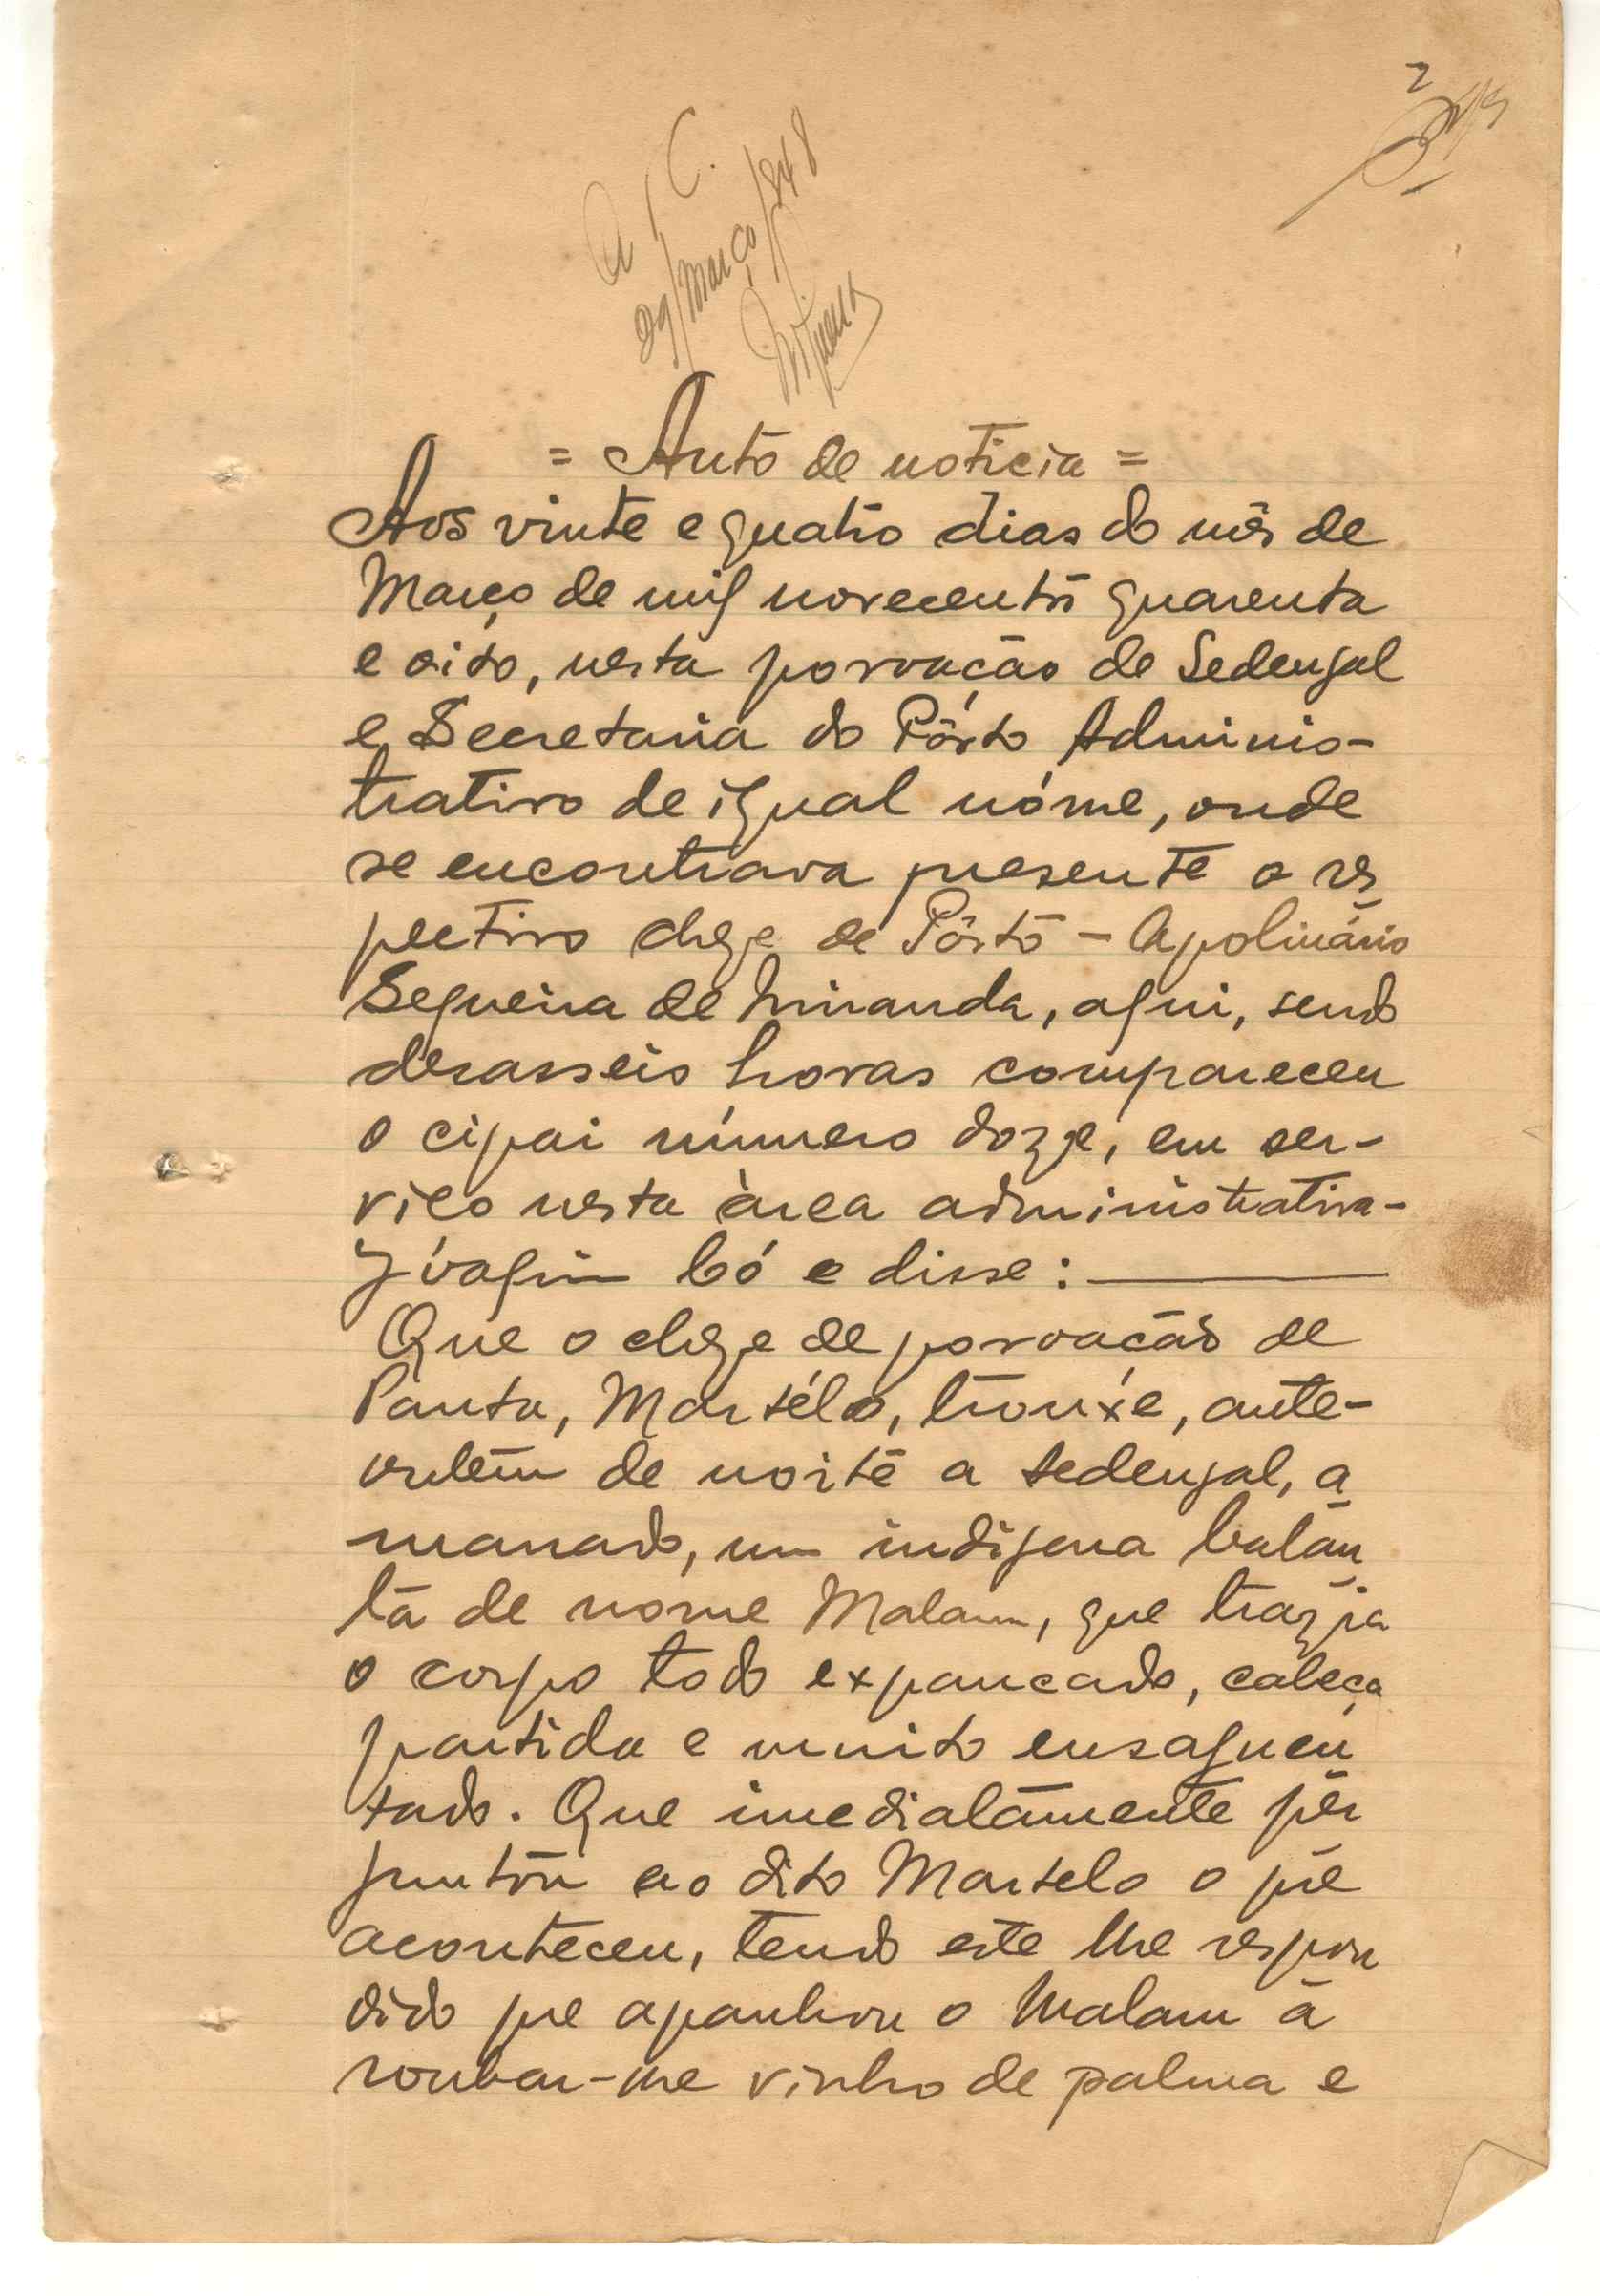 2
A / C.
29/Março/948
= Auto de noticia =
Aos vinte e quatro dias do mês de
Março de mil novecentos quarenta
e oito, nesta povoação de Sedengal
e Secretaria do Pôsto Adminis-
trativo de igual nóme, onde
se encontrava presente o res
pectivo chefe de Pôsto - Apolinário
Sequeira de Miranda, aqui, sendo
desasseis horas compareceu
o cipai número doze, em ser-
viço nesta àrea administrativa-
Jóaqim Có e disse:
Que o chefe de povoação de
Panta, Martélo, trouxe, ante-
ontem de noite a Sedengal, a
manado, um indigena balan
ta de nome Malam, que trazia
o corpo todo expancado, cabeça
partida e muito ensaguen
tado. Que imediatamente per
guntou ao dito Martelo o que
aconteceu, tendo este lhe respon
dido que apanhou o Malam a
roubar-lhe vinho de palma e